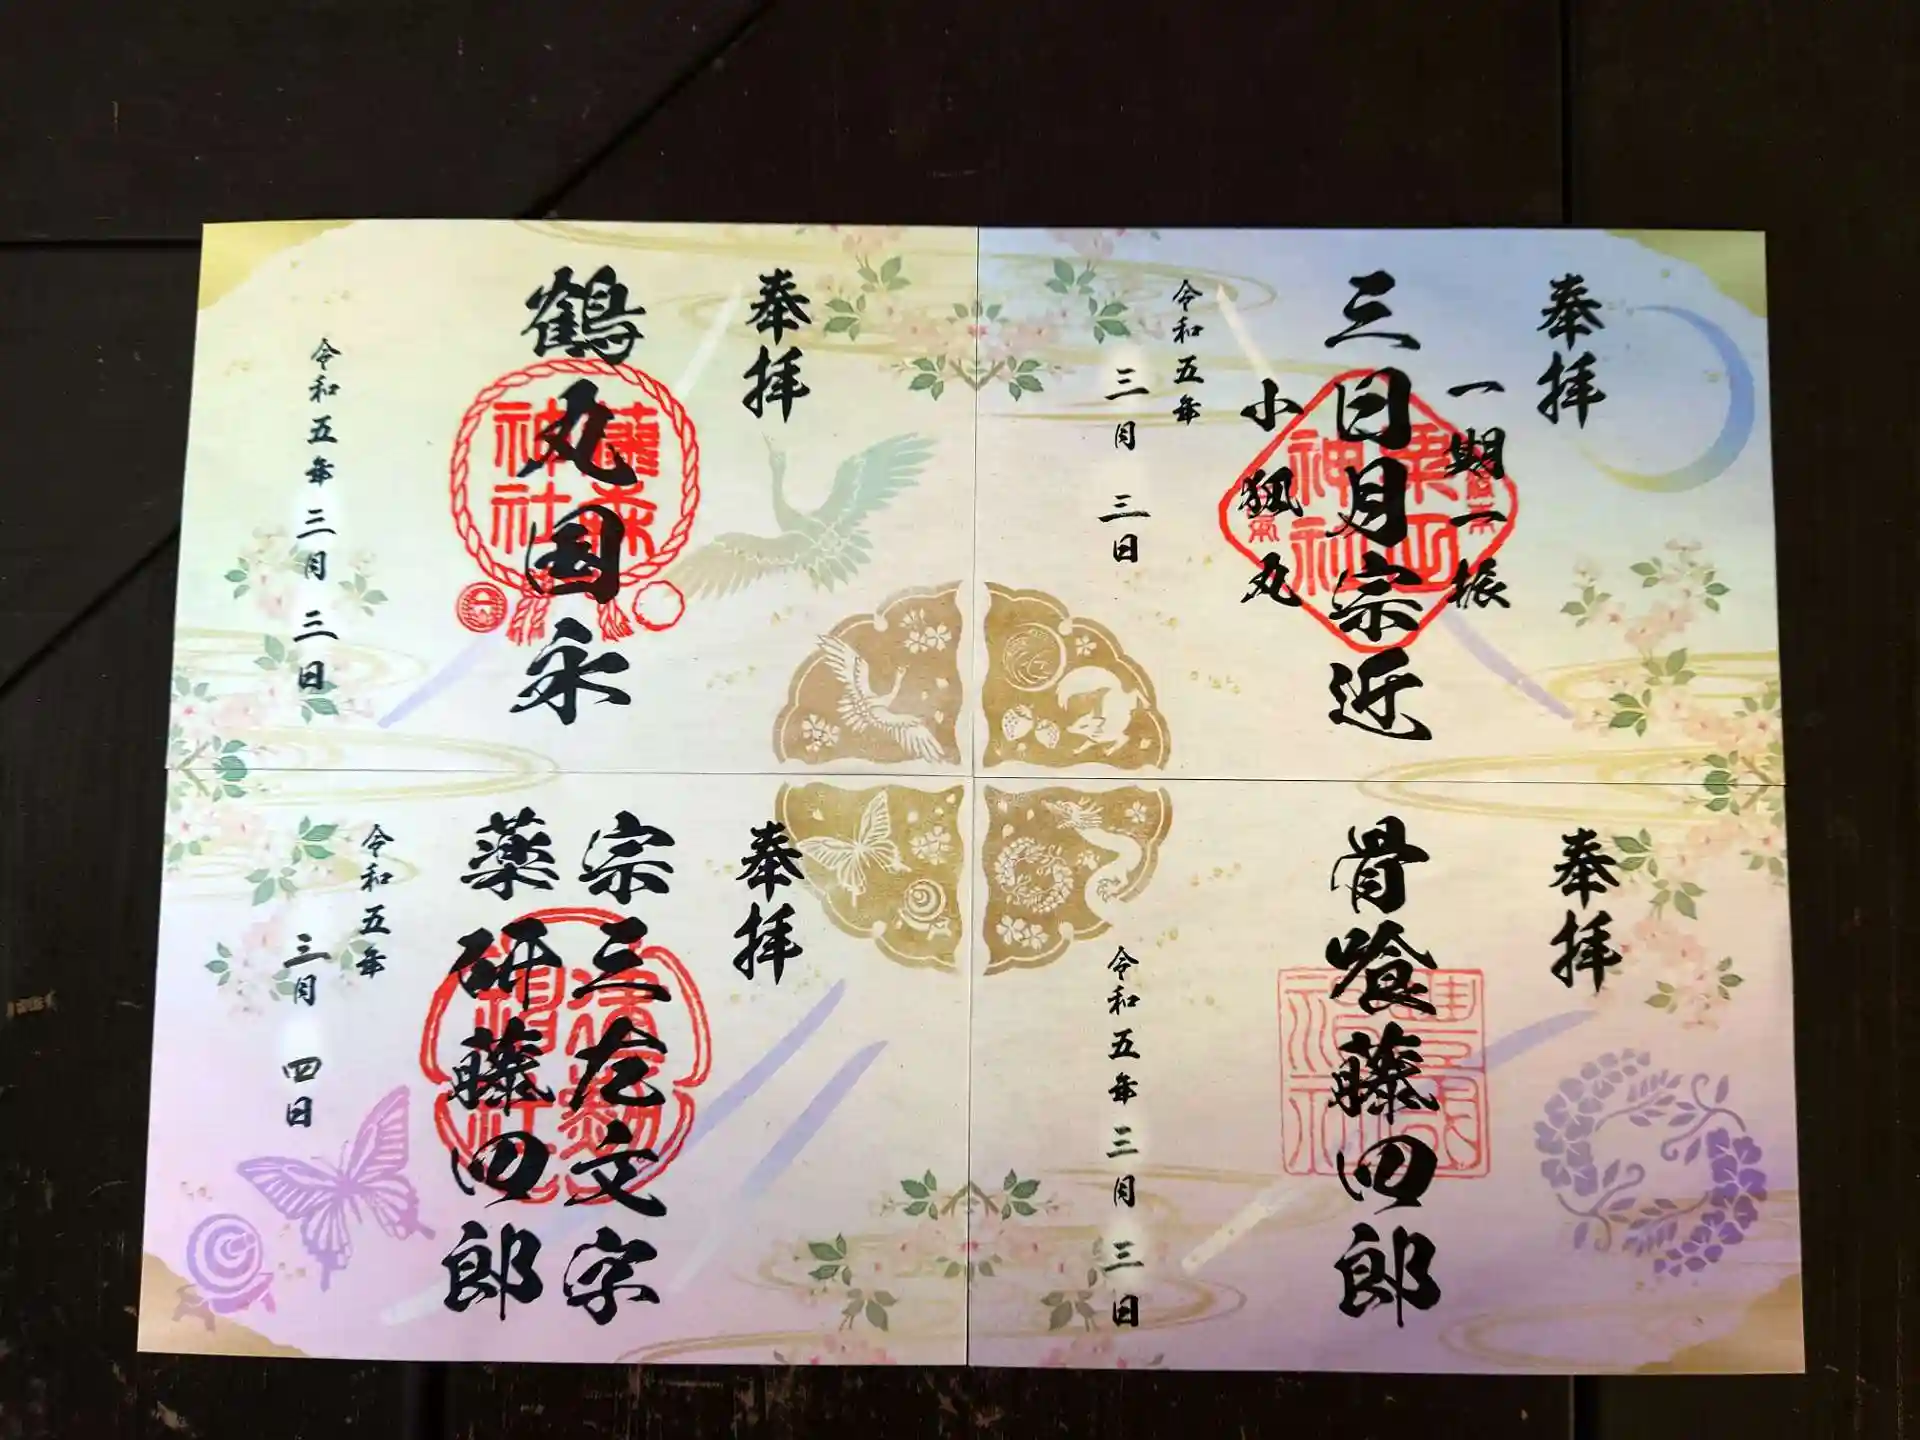 奉拝
一期一振
三日月宗近
小狐丸
令和五年
三月三日
粟田神社
奉拝
鶴丸国永
令和五年三月三日
藤森神社
奉拝
骨喰藤四郎
令和五年三月三日
豊国神社
奉拝
宗三左文字
薬研藤四郎
令和五年
三月四日
建勲神社